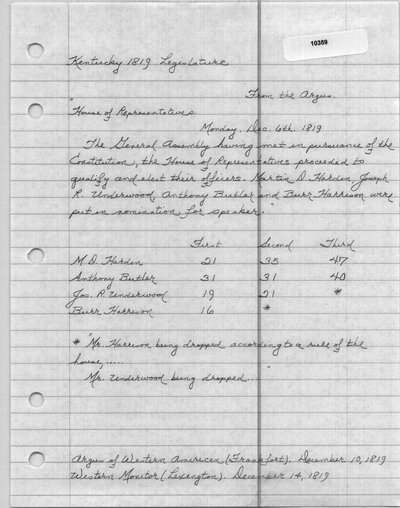 10359
Kentucky 1819 Legislature
From the Argus.
"House of Representatives.
Monday, Dec. 6th. 1819
The General Assembly having met in pursuance of the
Constitution, the House of Representatives proceeded to
qualify and elect their officers. Martin D. Harden, Joseph
R. Underwood, Anthony Butler and Burr Harrison were
put in nomination for speaker."
First Second Third
M. D. Harden 21 35 47
Anthony Butler 31 31 40
Jos. R Underwood 19 21 *
Burr Harrison 16 *
* "Mr. Harrison being dropped according to a rule of the
house,.....
Mr. Underwood being dropped..."
Argus of Western American (Frankfort). December 10, 1819
Western Monitor (Lexington). December 14, 1819